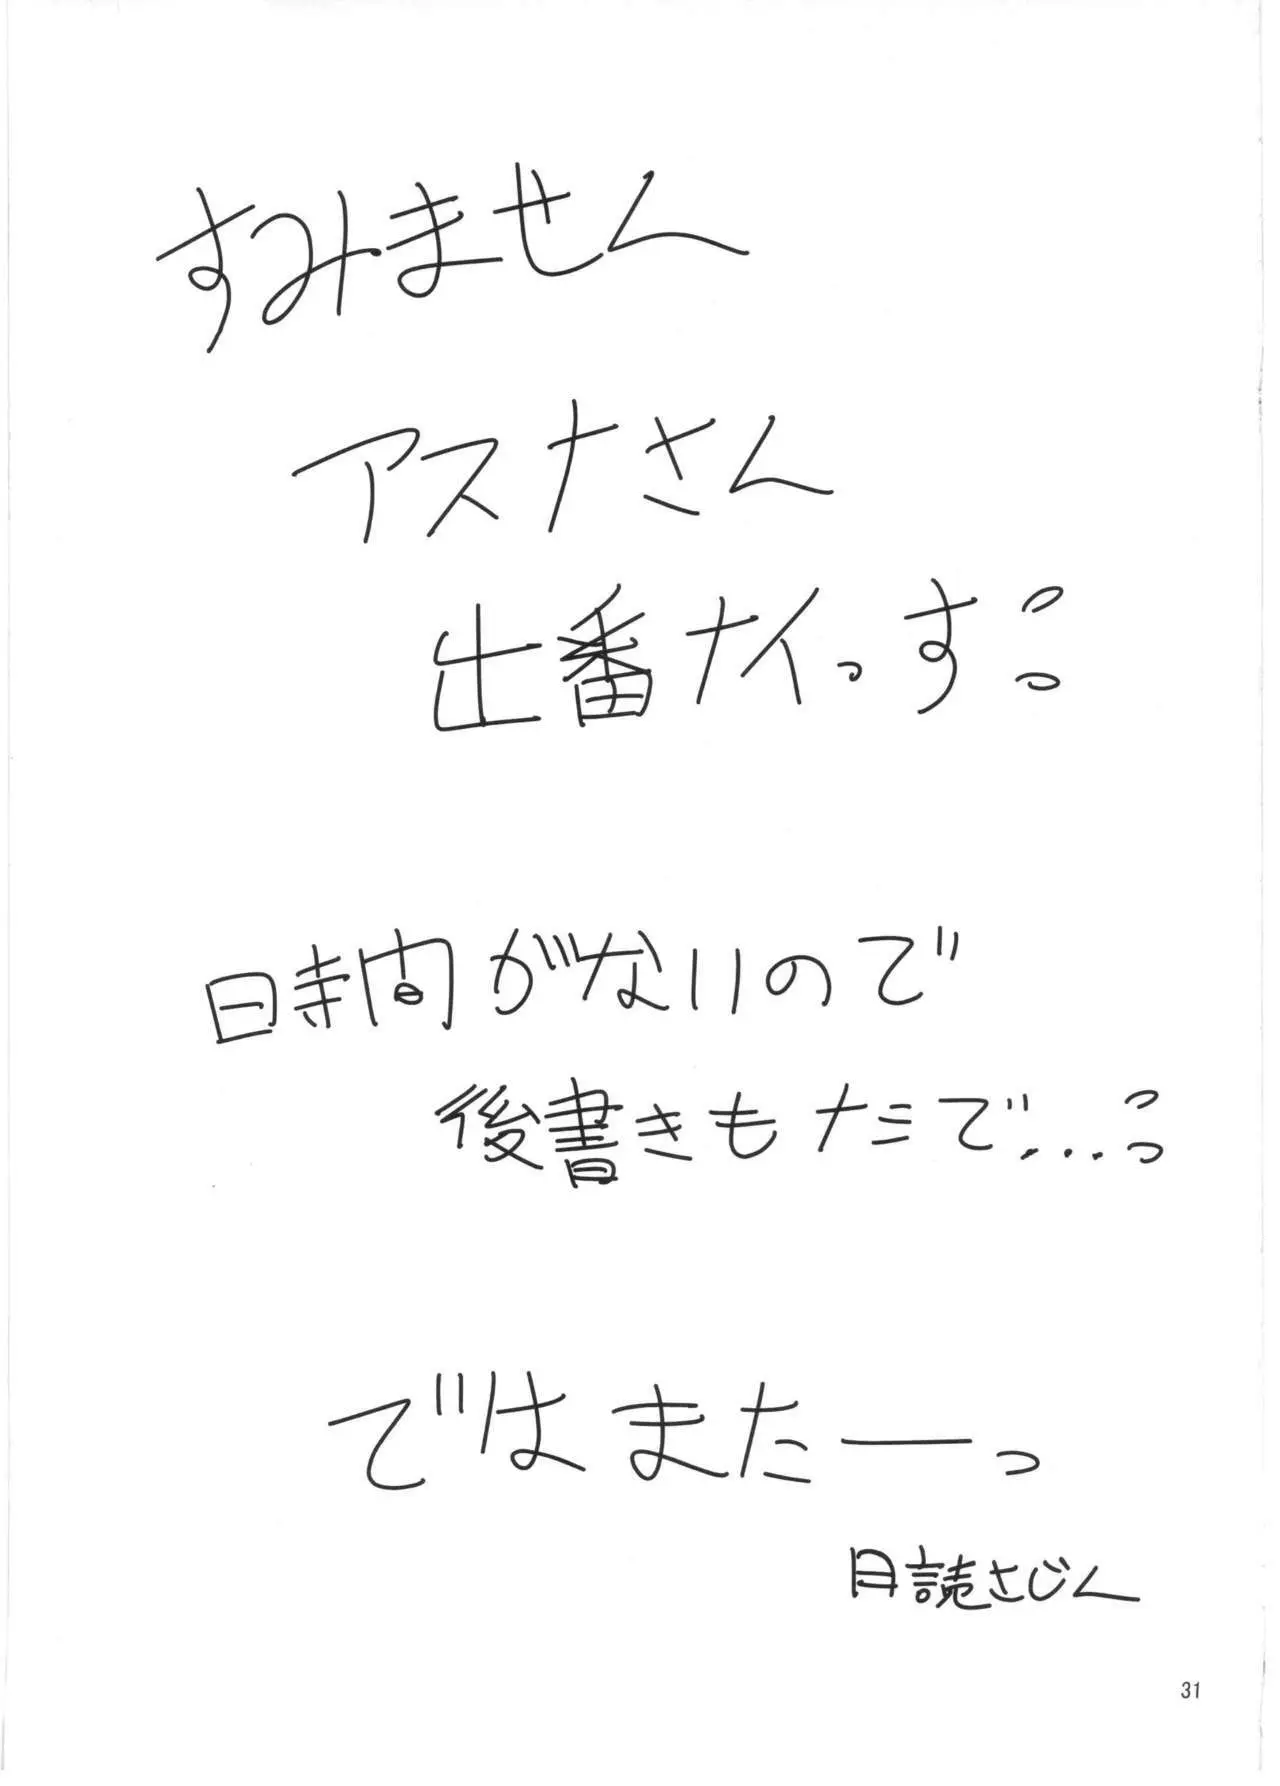 すみません
アスナさん
出番ナイっすっっ
時間がないので
後書きもナシで…っっ
ではまたーっ
月読さじん
31